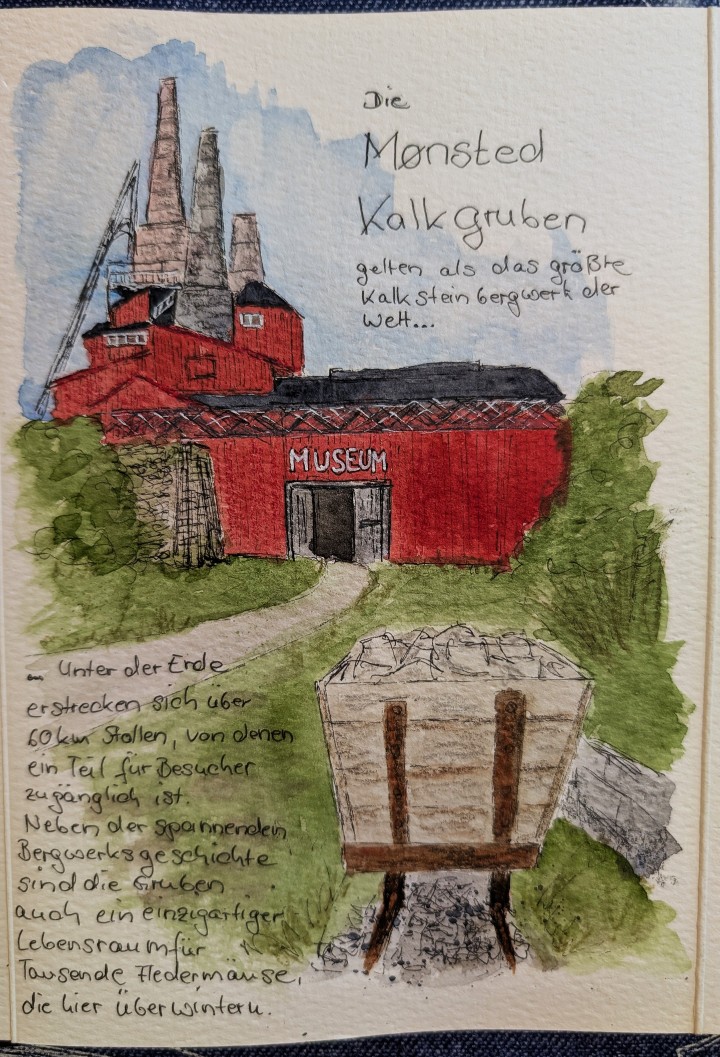 Die
Mønsted
Kalkgruben
gelten als das größte
Kalksteinbergwerk der
Welt...
MUSEUM
... Unter der Erde
erstrecken sich über
60 km Stollen, von denen
ein Teil für Besucher
zugänglich ist.
Neben der spannenden
Bergwerksgeschichte
sind die Gruben
auch ein einzigartiger
Lebensraum für
Tausende Fledermäuse,
die hier überwintern.